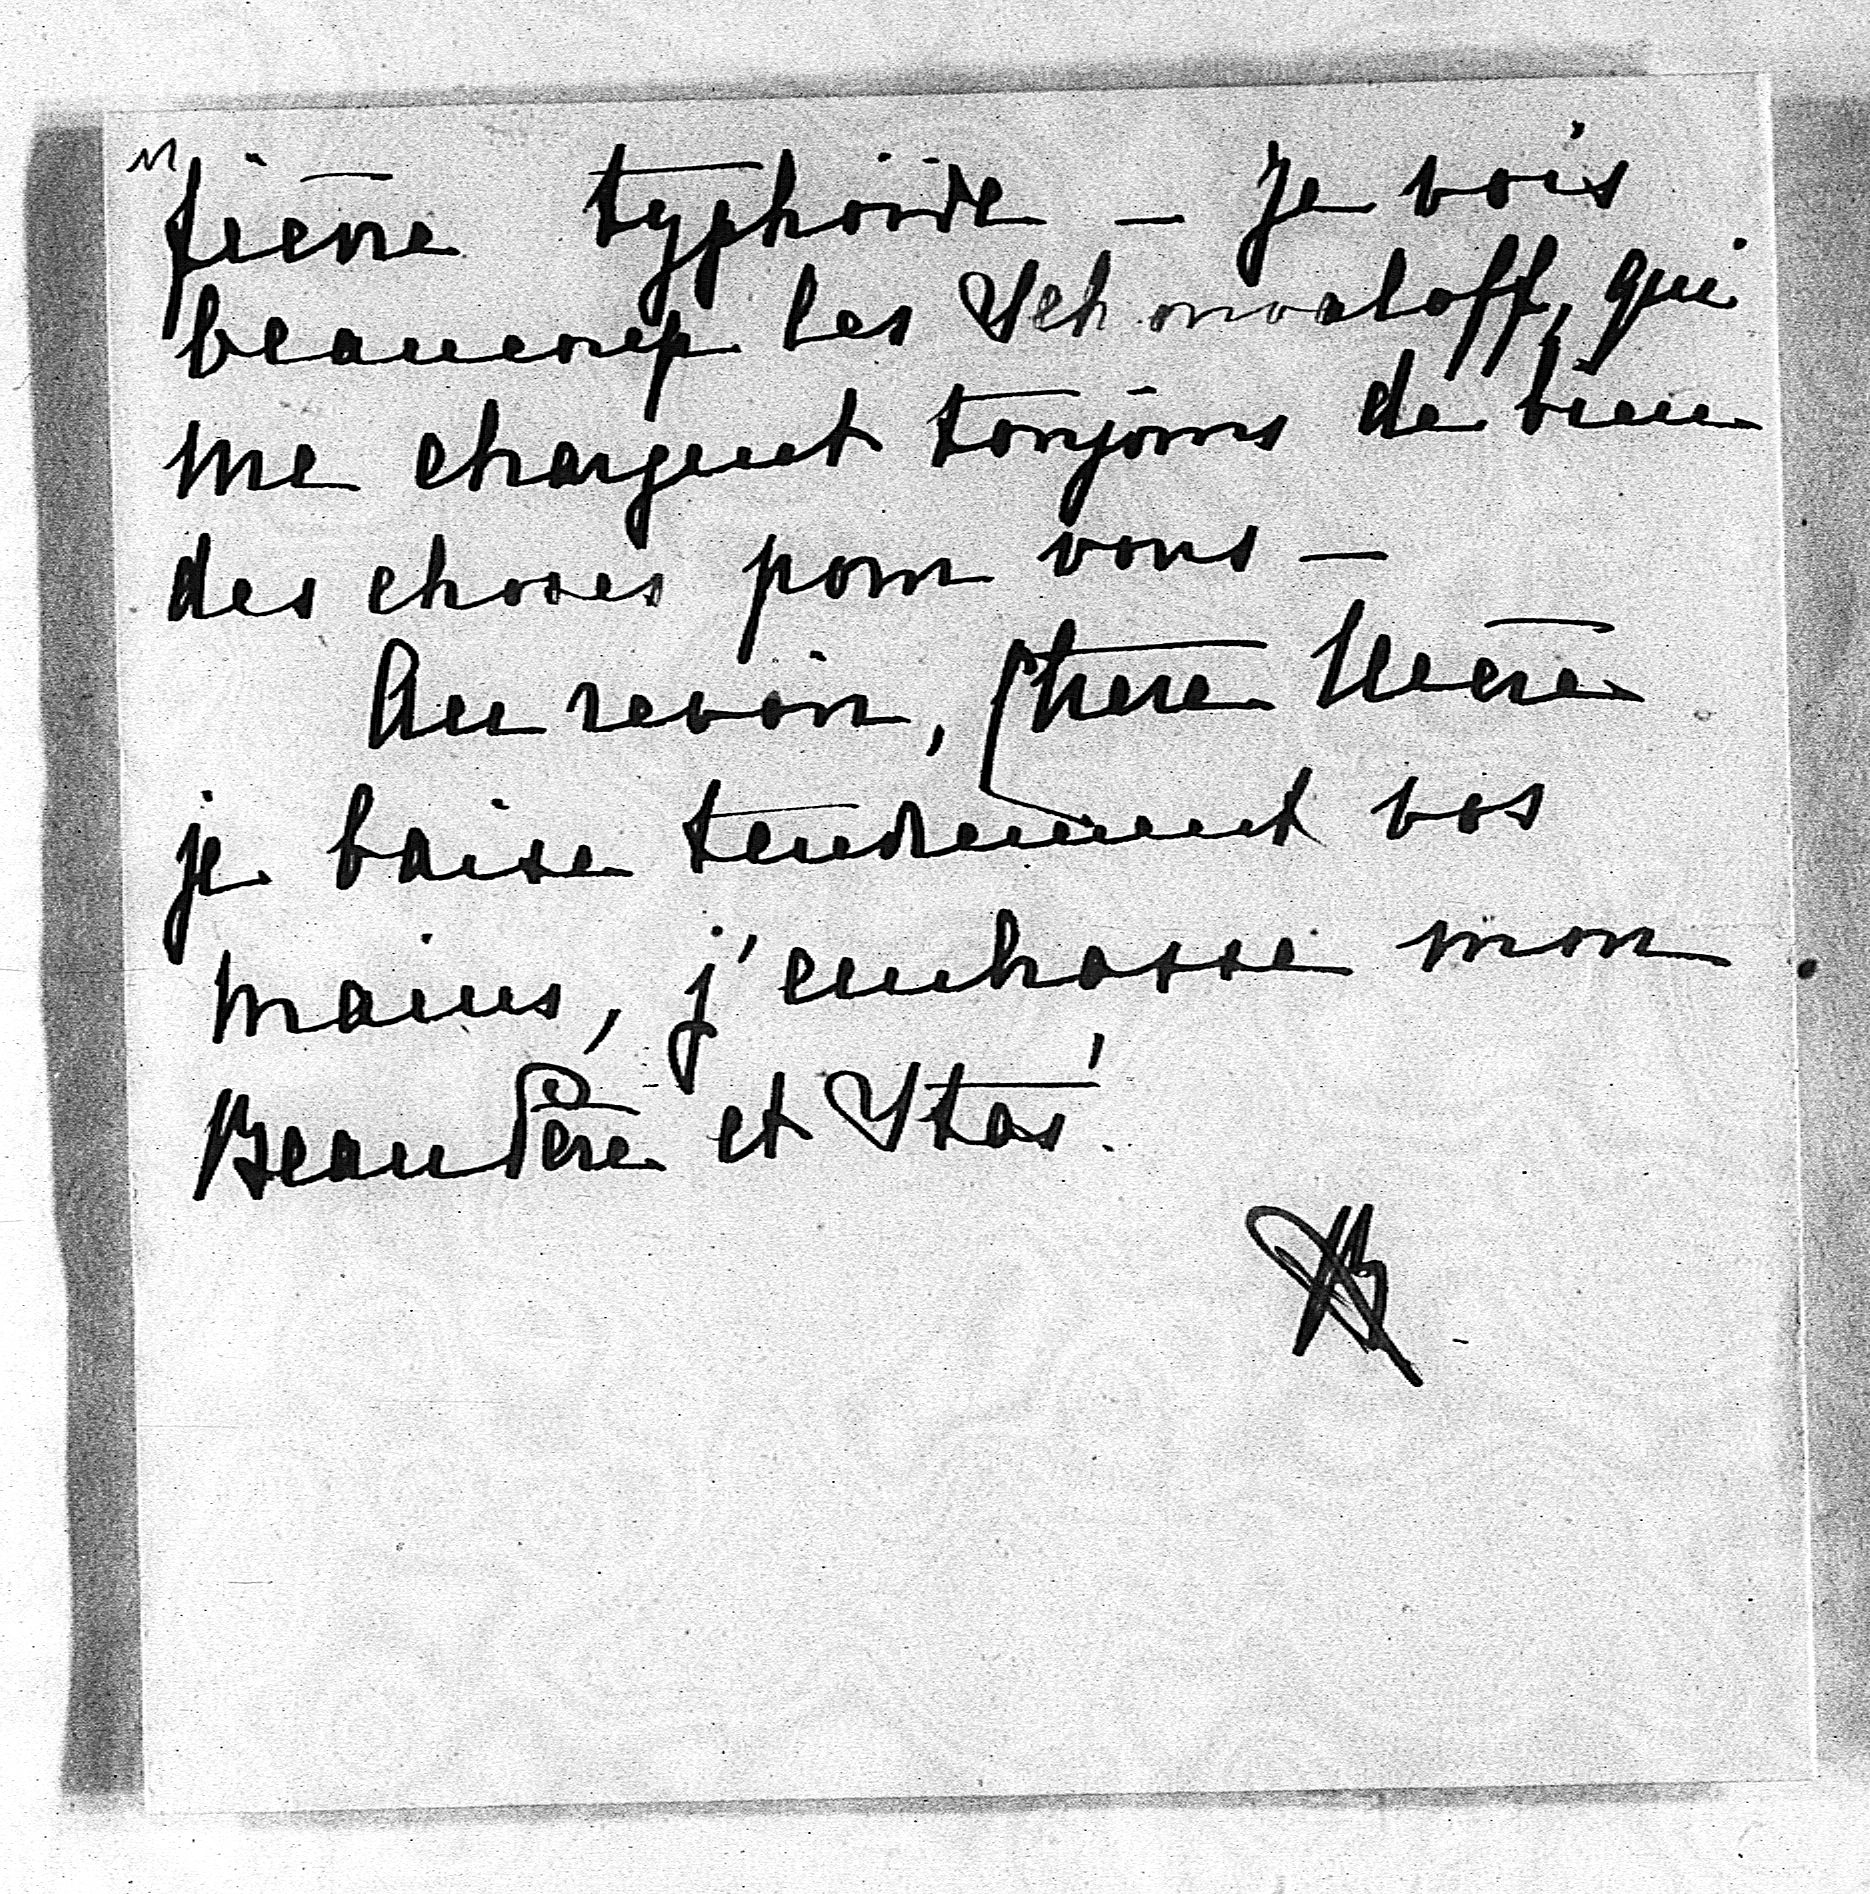 fièvre typhoïde — Je vois
beaucoup les Schouvaloff, qui
me chargent toujours de bien
des choses pour vous —
Au revoir, Chère Mère
je baise tendrement vos
mains, j'embrasse mon
Beau Père et Stas.